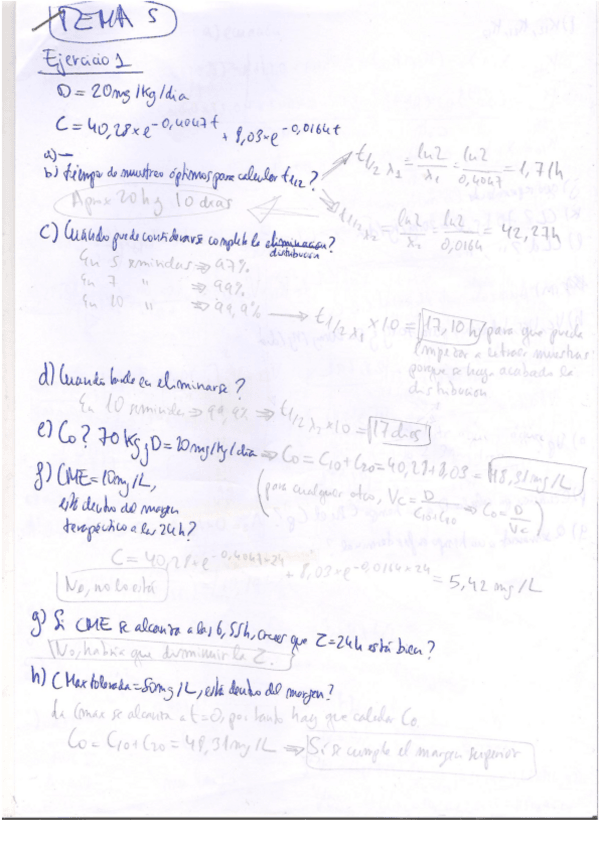 TEMA 5
Ejercicio 1
D = 20mg/kg/dia
C = 40,28×e^-0,4047t + 8,03×e^-0,0164t
a) —
b) tiempo de muestreo óptimos para calcular t1/2?
t1/2 λ1 = ln2/λ1 = ln2/0,4047 = 1,71h
Aprox 20h y 10 dias
t1/2 λ2 = ln2/λ2 = ln2/0,0164 = 42,27h
c) Cuándo puede considerarse completa la eliminacion?
distribución
En 5 semividas ⇒ 97%
En 7 " ⇒ 99%
En 10 " ⇒ 99,9% → t1/2 λ1 × 10 = 17,10h para que pueda
empezar a extraer muestras
porque se haya acabado la
distribucion
d) Cuando tarda en eliminarse?
En 10 semividas ⇒ 99,9% ⇒ t1/2 λ2 × 10 = 17 dias
e) Co? 70Kg y D = 20mg/kg/dia ⇒ Co = C10 + C20 = 40,28 + 8,03 = 48,31mg/L
f) CME = 10mg/L,
está dentro del margen
terapéutico a las 24h?
(para cualquier otro, Vc = D/C10+C20 ⇒ Co = D/Vc)
C = 40,28 × e^-0,4047×24 + 8,03 × e^-0,0164×24 = 5,42 mg/L
No, no lo está
g) Si CME se alcanza a las 6,55h, crees que Z = 24h está bien?
No, habría que disminuir la Z.
h) CMax tolerada = 50mg/L, está dentro del margen?
La Cmax se alcanza a t=0, por tanto hay que calcular Co.
Co = C10 + C20 = 48,31mg/L ⇒ Sí se cumple el margen superior